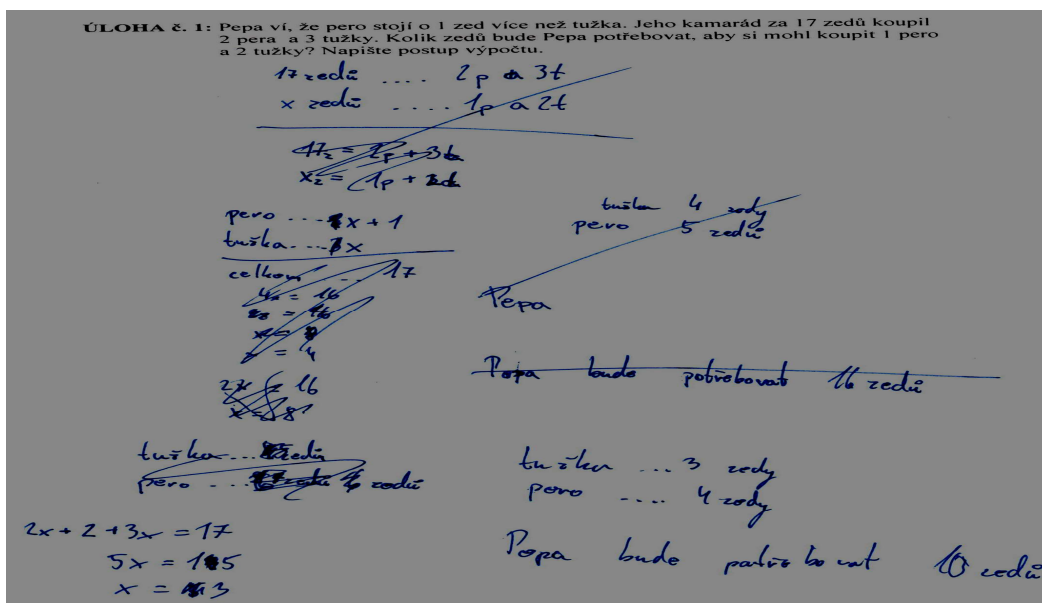 ÚLOHA č. 1: Pepa ví, že pero stojí o 1 zed více než tužka. Jeho kamarád za 17 zedů koupil
2 pera a 3 tužky. Kolik zedů bude Pepa potřebovat, aby si mohl koupit 1 pero
a 2 tužky? Napište postup výpočtu.
17 zedů .... 2p a 3t
x zedů .... 1p a 2t
17z = 2p + 3t
xz = 1p + 2t
pero ... x + 1
tuška ... x
celkem ... 17
4x = 16
x = 4
2x = 16
x = 8
tuška 4 zedy
pero 5 zedů
Pepa
Pepa bude potřebovat 16 zedů
tuška ... zedů
pero ... zedů
2x + 2 + 3x = 17
5x = 15
x = 3
tuška ... 3 zedy
pero .... 4 zedy
Pepa bude potřebovat 10 zedů